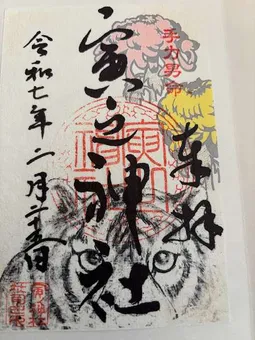 奉拝
手力男命
寅之神社
令和七年二月二十五日